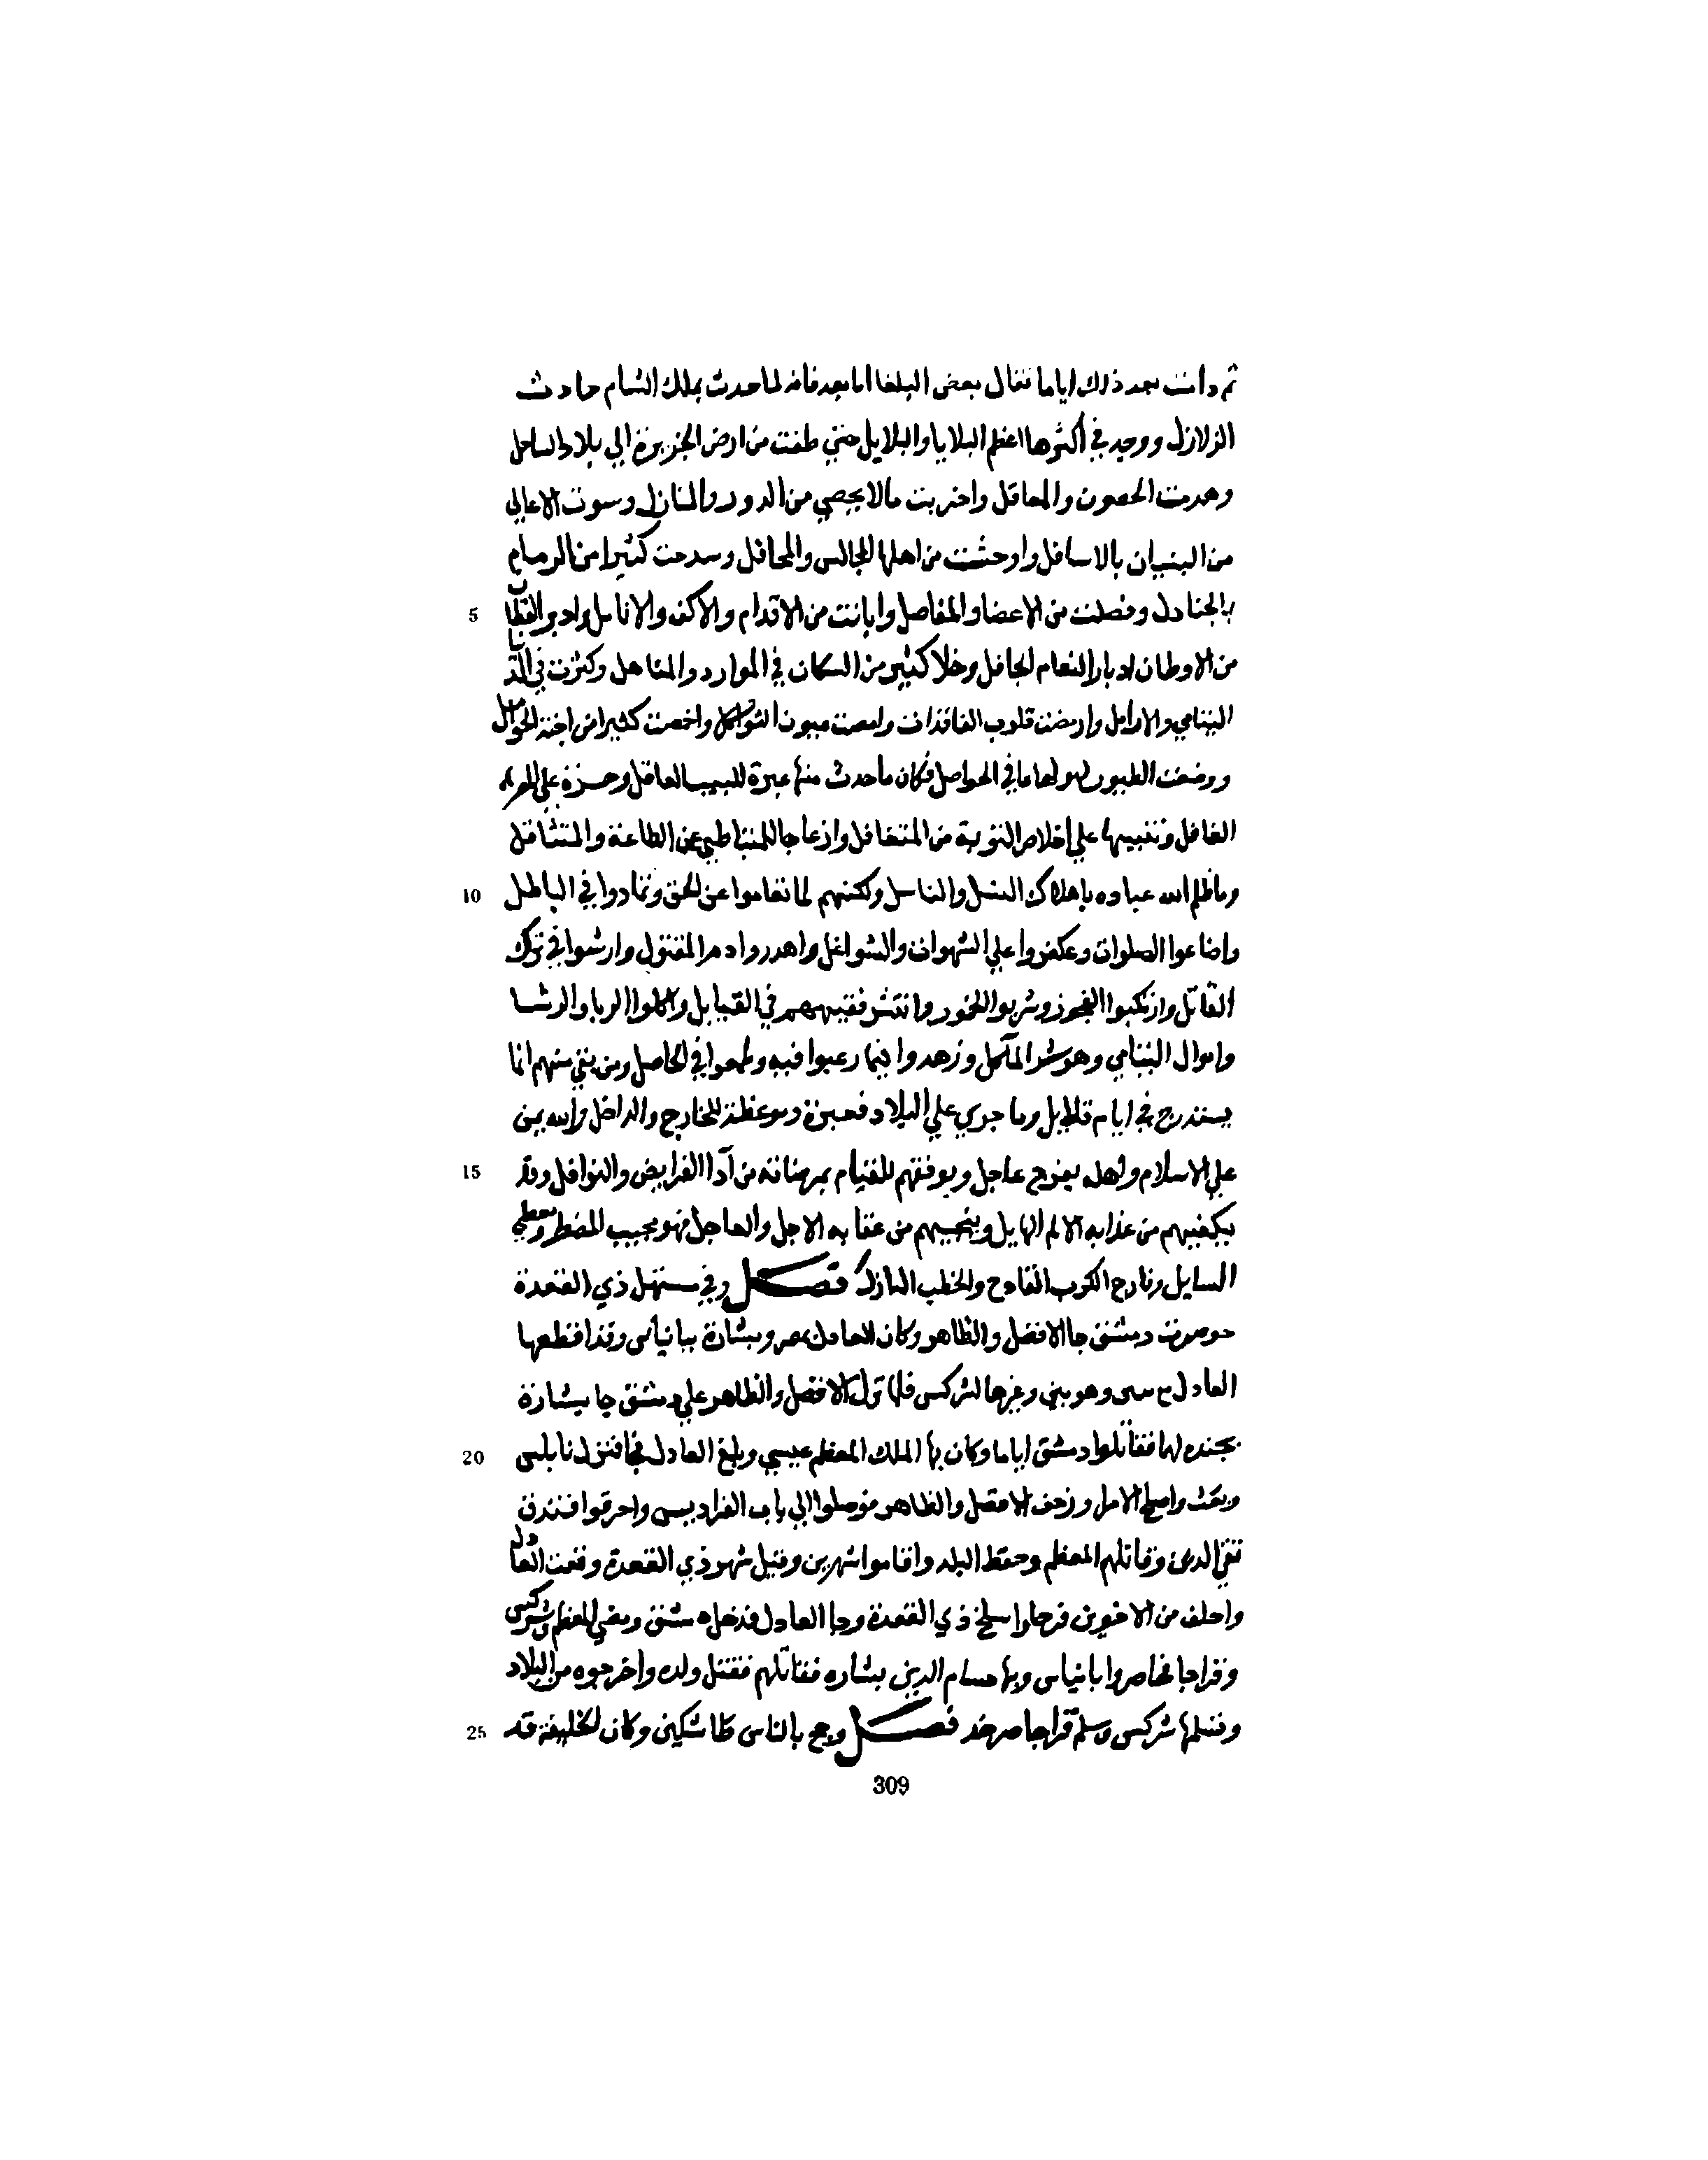 ثم دامت بعد ذلك اياما فقال بعض البلغا اما بعد فانه لما حدث بملك الشام حادث
الزلازل ووجد في اكثرها اعظم البلايا والبلابل حتي طفت من ارض الجزيرة الي بلاد الساحل
وهدمت الحصون والمعاقل واخربت مالا يحصي من الدور والمنازل وسوت الاعالي
من البنيان بالاسافل واوحشت من اهلها المجالس والمحافل وسدحت كثيرا من الرمام
بالجنادل وفصلت من الاعضا والمفاصل وابانت من الاقدام والاكف والانامل وادبر القطاب
من الاوطان ادبار النعام الجافل وخلا كثير من السكان في الموارد والمناهل وكثرت في الدنيا
اليتامي والارامل وارمضت قلوب الفاقدات وامصت عيون الثواكل واخصت كثيرا من اجنة الحوامل
ووضعت الطيور لهولها ما في الحواصل فكان ما حدث منها عبرة للبيب العاقل وحسرة علي
الغافل وتنبيها علي اخلاص التوبة من المتغافل وازعاجا للمتباطي عن الطاعة والمتثاقل
وما ظلم الله عباده باهلاك النسل والناسل ولكنهم لما تعاموا عن الحق وتمادوا في الباطل
واضاعوا الصلوات وعكفوا علي الشهوات والشواغل واهدروا دم المقتول وارشوا في ترك
القاتل وارتكبوا الفجور وشربوا الخمور وانتشر فقيههم في القبايل واكلوا الربا والرشا
واموال اليتامي وهو شر المآكل وزهدوا فيما رغبوا فيه وطمعوا في الحاصل ومن بقي منهم انما
يستدرج في ايام قلايل وما جري علي البلاد فعبرة وموعظة للخارج والداخل والله يمن
علي الاسلام واهله بفرج عاجل ويوفقهم للقيام بمرضاته من آدا الفرايض والنوافل وقد
يكفيهم من عذابه الالم الهايل وينجيهم من عقابه الاجل والعاجل فهو مجيب المضطر ومعطي
السايل وفارج الكرب الفادح والخطب النازل فصل وفي مستهل ذي القعدة
حوصرت دمشق جا الافضل والظاهر وكان العادل بمصر وبشارة ببانياس وقد اقطعها
العادل وهو بنين وغيرها لشركس فلما نزل الافضل والظاهر علي دمشق جا بشارة
بجنده لها فقاتلوا دمشق اياما وكان بها الملك المعظم عيسي وبلغ العادل فجا فنزل نابلس
وبعث واصلح الامرا وزحف الافضل والظاهر فوصلوا الي باب الفراديس واحرقوا فندق
تقي الدين وقاتلهم المعظم وحفظ البلد واقاموا شهرين وقيل شهر ذي القعدة وبعث العادل
واحلف من الاخوين فرحلوا سلخ ذي القعدة وجا العادل فدخل دمشق ومضي المعظم وشركس
وقراجا فحاصروا بانياس وبها حسام الدين بشاره فقاتلهم فقتل ولده واخرجوه من البلاد
وتسلمها شركس وسلم قراجا صرخد فصل وحج بالناس طاشتكين وكان الخليفة قد
5
10
15
20
25
309